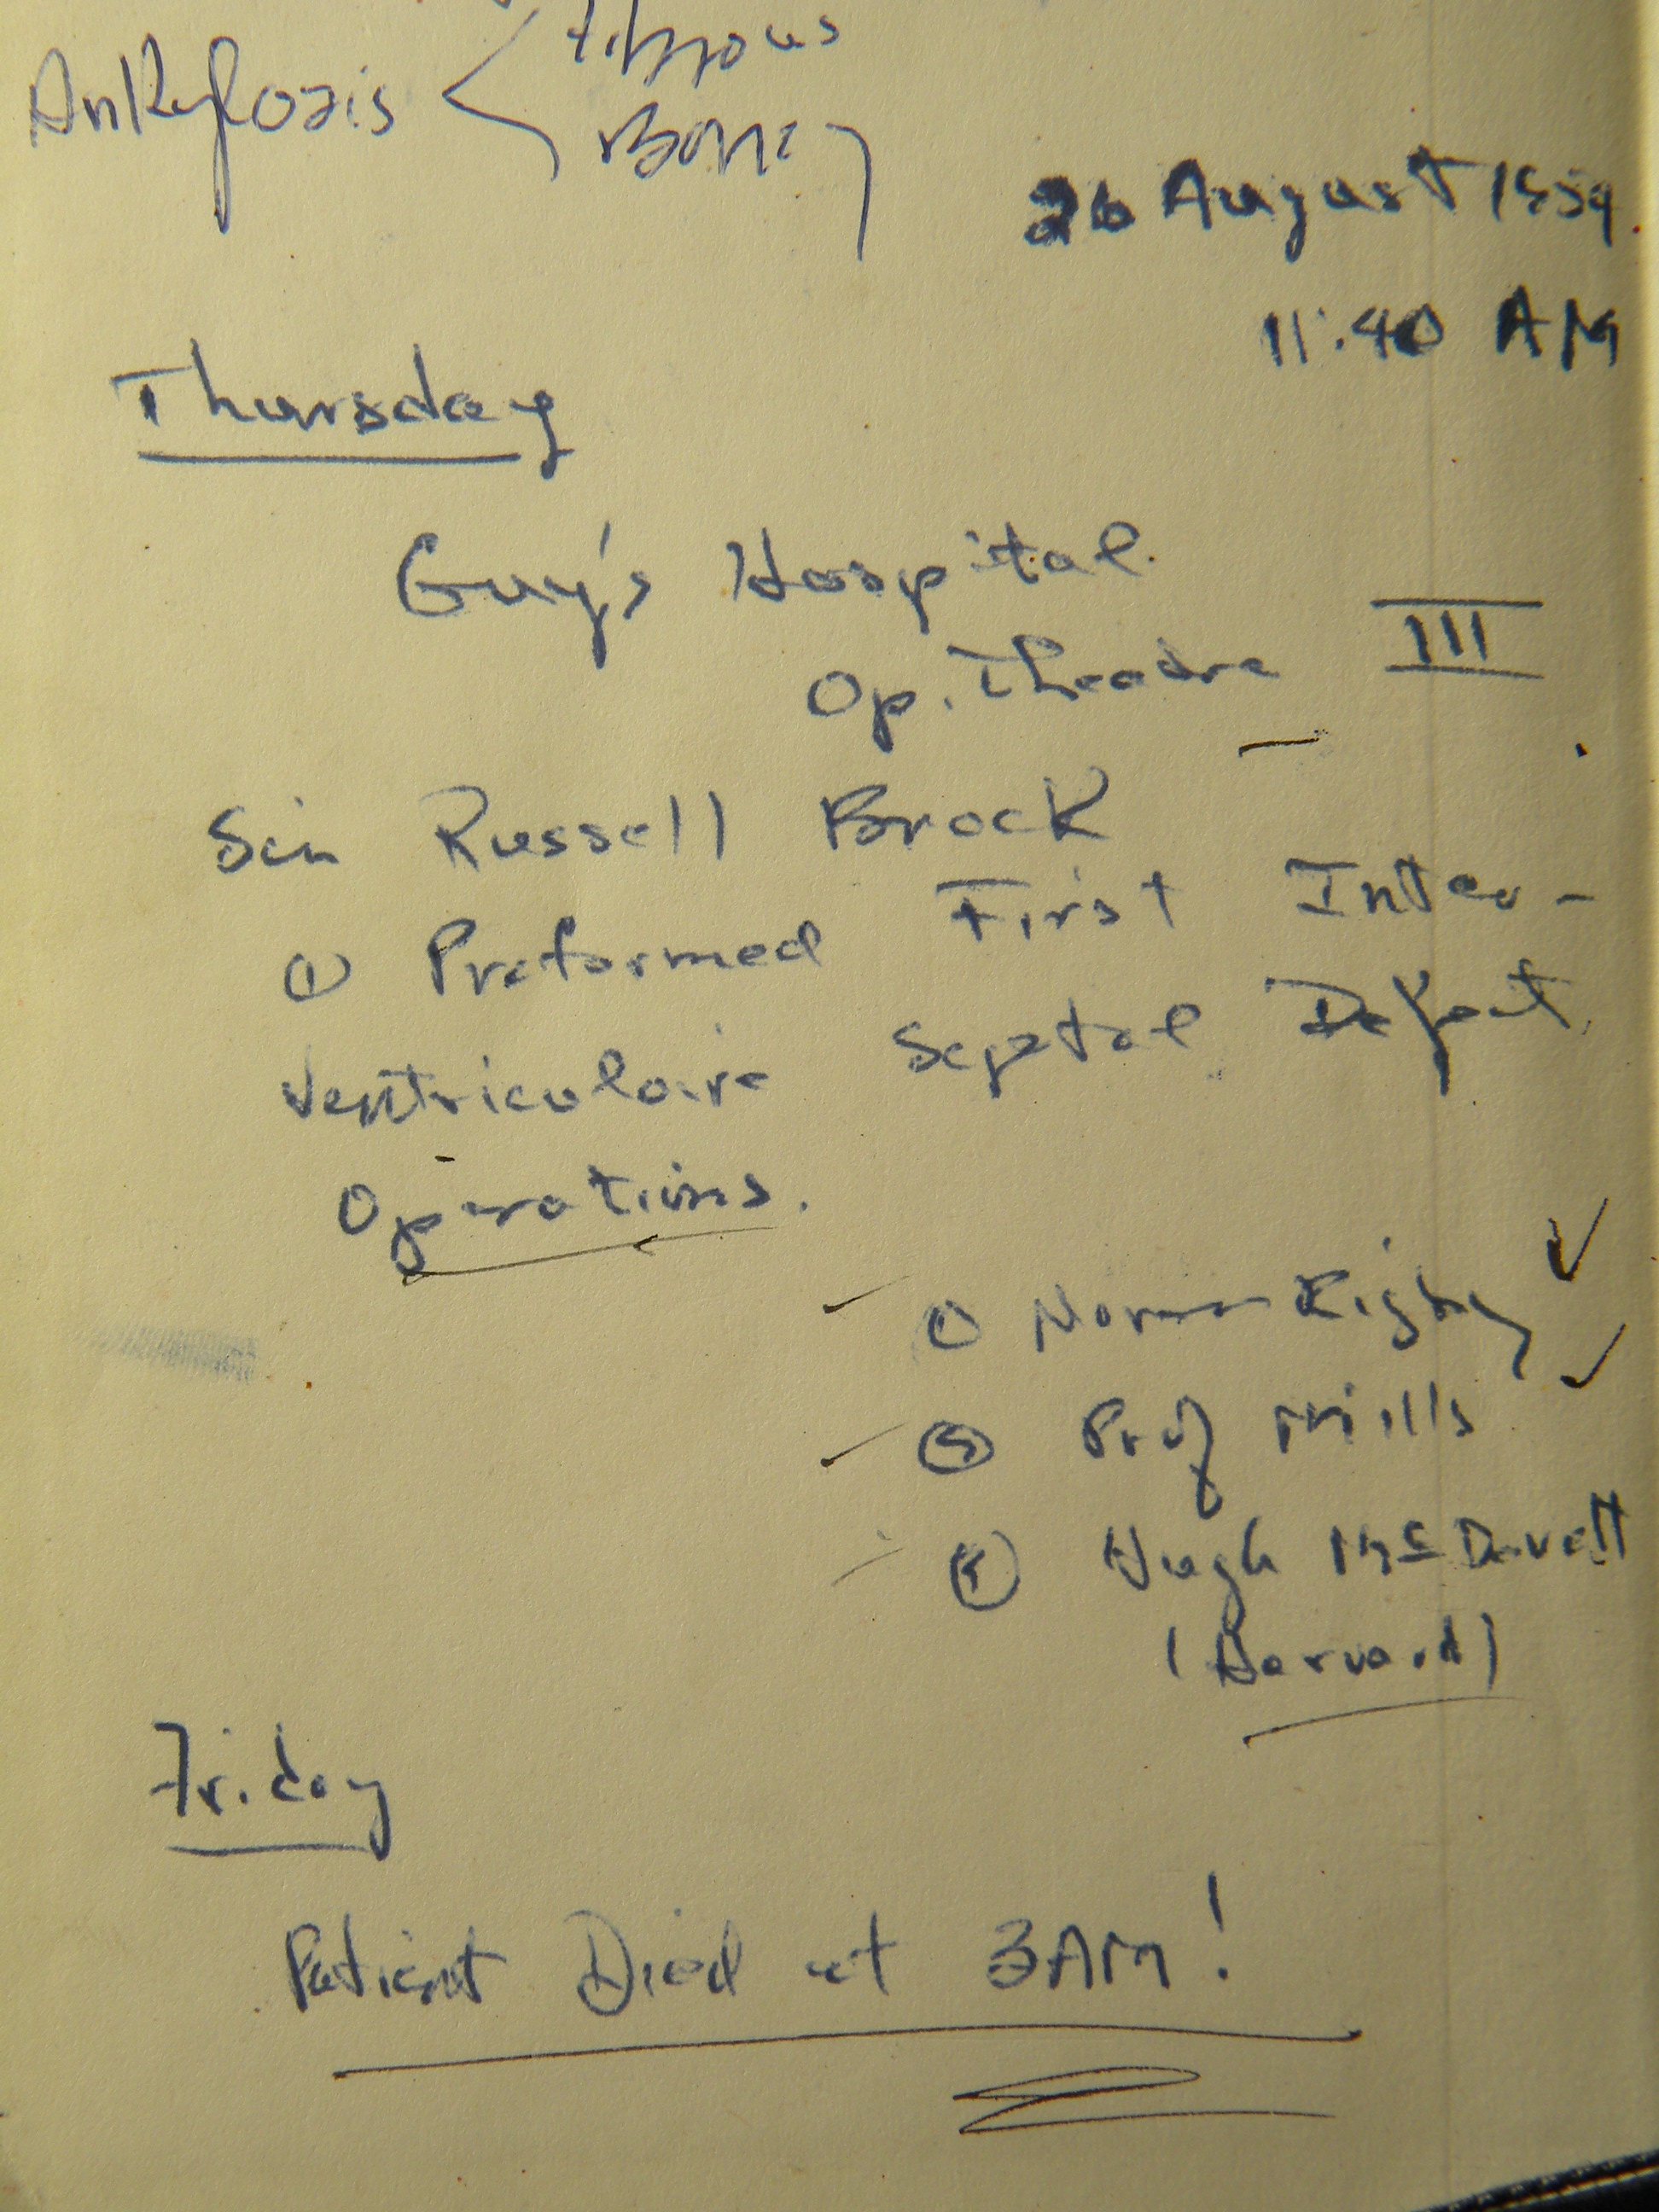 Fibrous
Ankylosis <
Bony
26 August 1954.
11:40 AM
Thursday
Guy's Hospital.
Op. Theatre III
Sir Russell Brock
① Preformed First Inter-
ventriculaire Septal Defect
Operations.
① Norman Rigby ✓
Prof Mills ✓
Hugh McDevett
(Harvard)
Friday
Patient Died at 3AM!